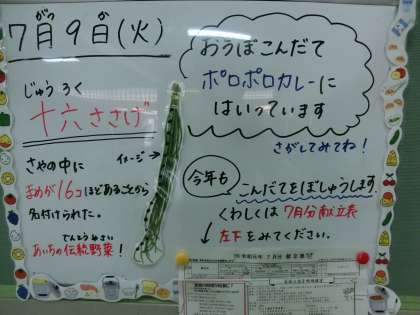 7月9日(火)
がつ か
じゅう ろく
十六ささげ
さやの中に
まめが16コほどあることから
名付けられた。
でんとう やさい
あいちの伝統野菜!
イメージ→
おうぼこんだて
ポロポロカレーに
はいっています
さがしてみてね!
今年も
こんだてをぼしゅうします。
くわしくは7月分献立表
↓左下をみてください。